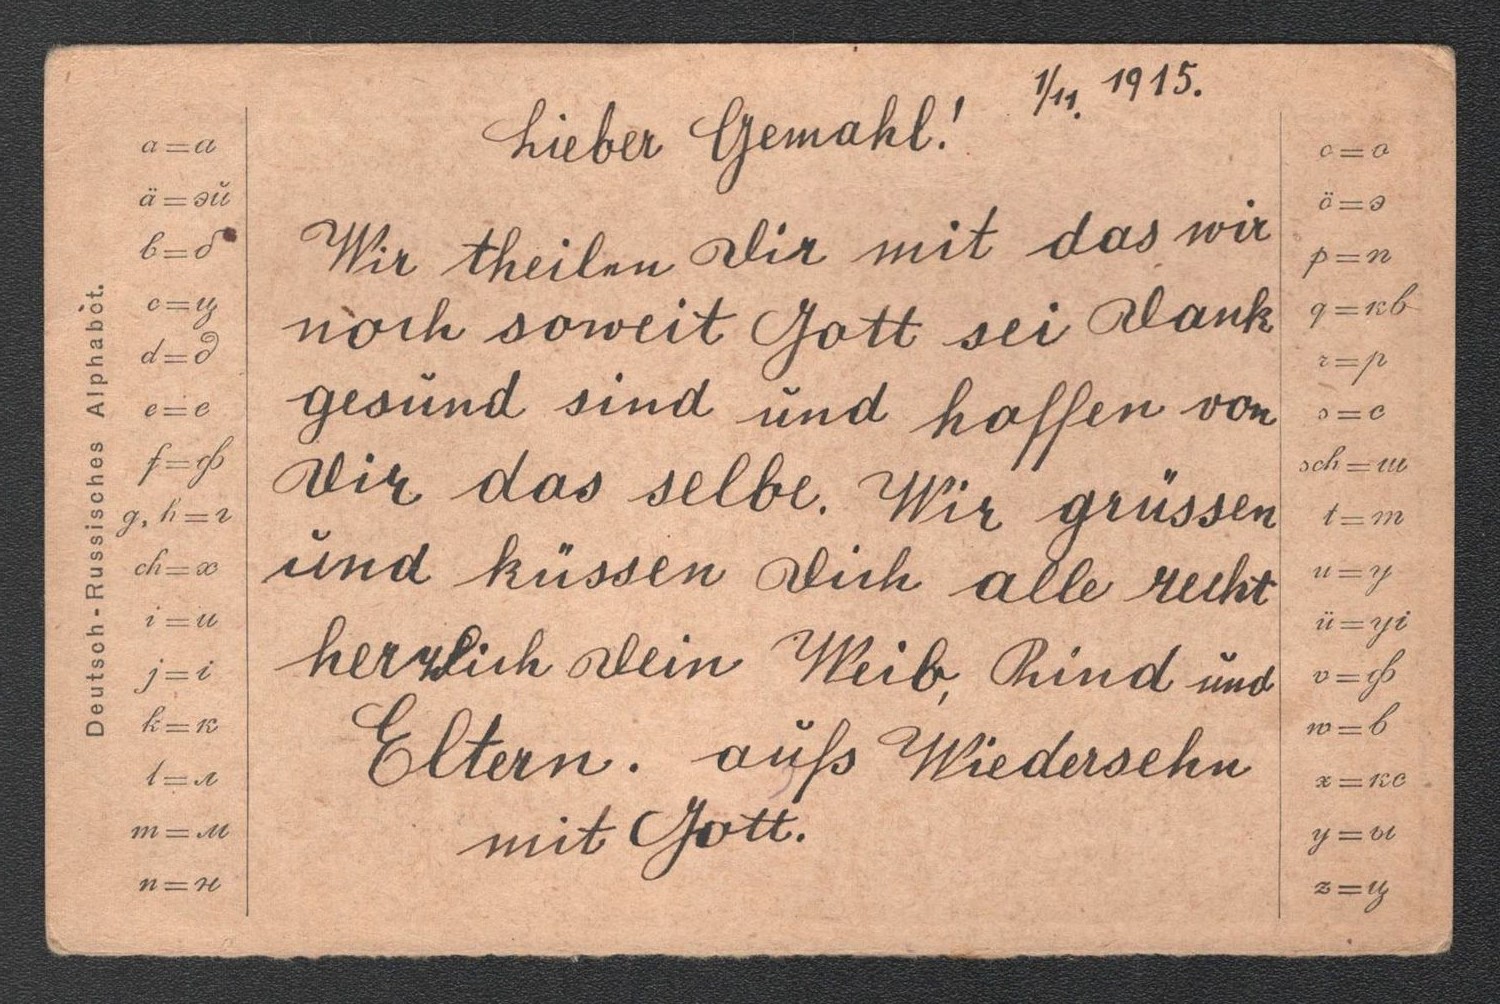 Deutsch-Russisches Alphabet.
a=а
ä=эй
b=б
c=ц
d=д
e=е
f=ф
g, h=г
ch=х
i=и
j=і
k=к
l=л
m=м
n=н
1/11. 1915.
Lieber Gemahl!
Wir theilen Dir mit das wir
noch soweit Gott sei Dank
gesund sind und hoffen von
Dir das selbe. Wir grüssen
und küssen Dich alle recht
herzlich Dein Weib, Kind und
Eltern. aufs Wiedersehn
mit Gott.
o=о
ö=э
p=п
q=кв
r=р
s=с
sch=ш
t=т
u=у
ü=уі
v=ф
w=в
x=кс
y=ы
z=ц